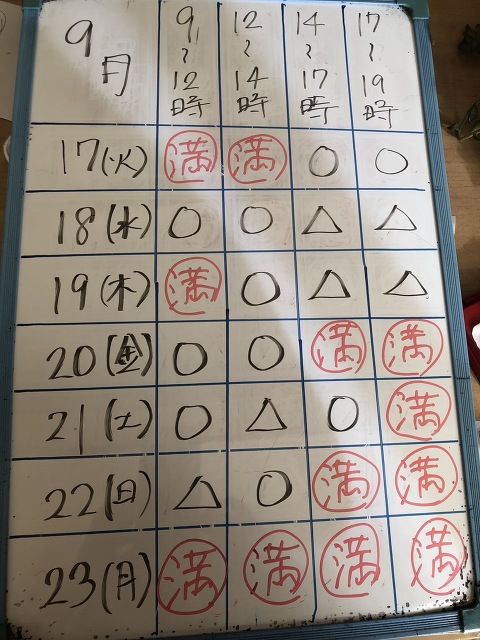 9月 9~12時 12~14時 14~17時 17~19時
17(火) 満 満 ○ ○
18(水) ○ ○ △ △
19(木) 満 ○ △ △
20(金) ○ ○ 満 満
21(土) ○ △ ○ 満
22(日) △ ○ 満 満
23(月) 満 満 満 満